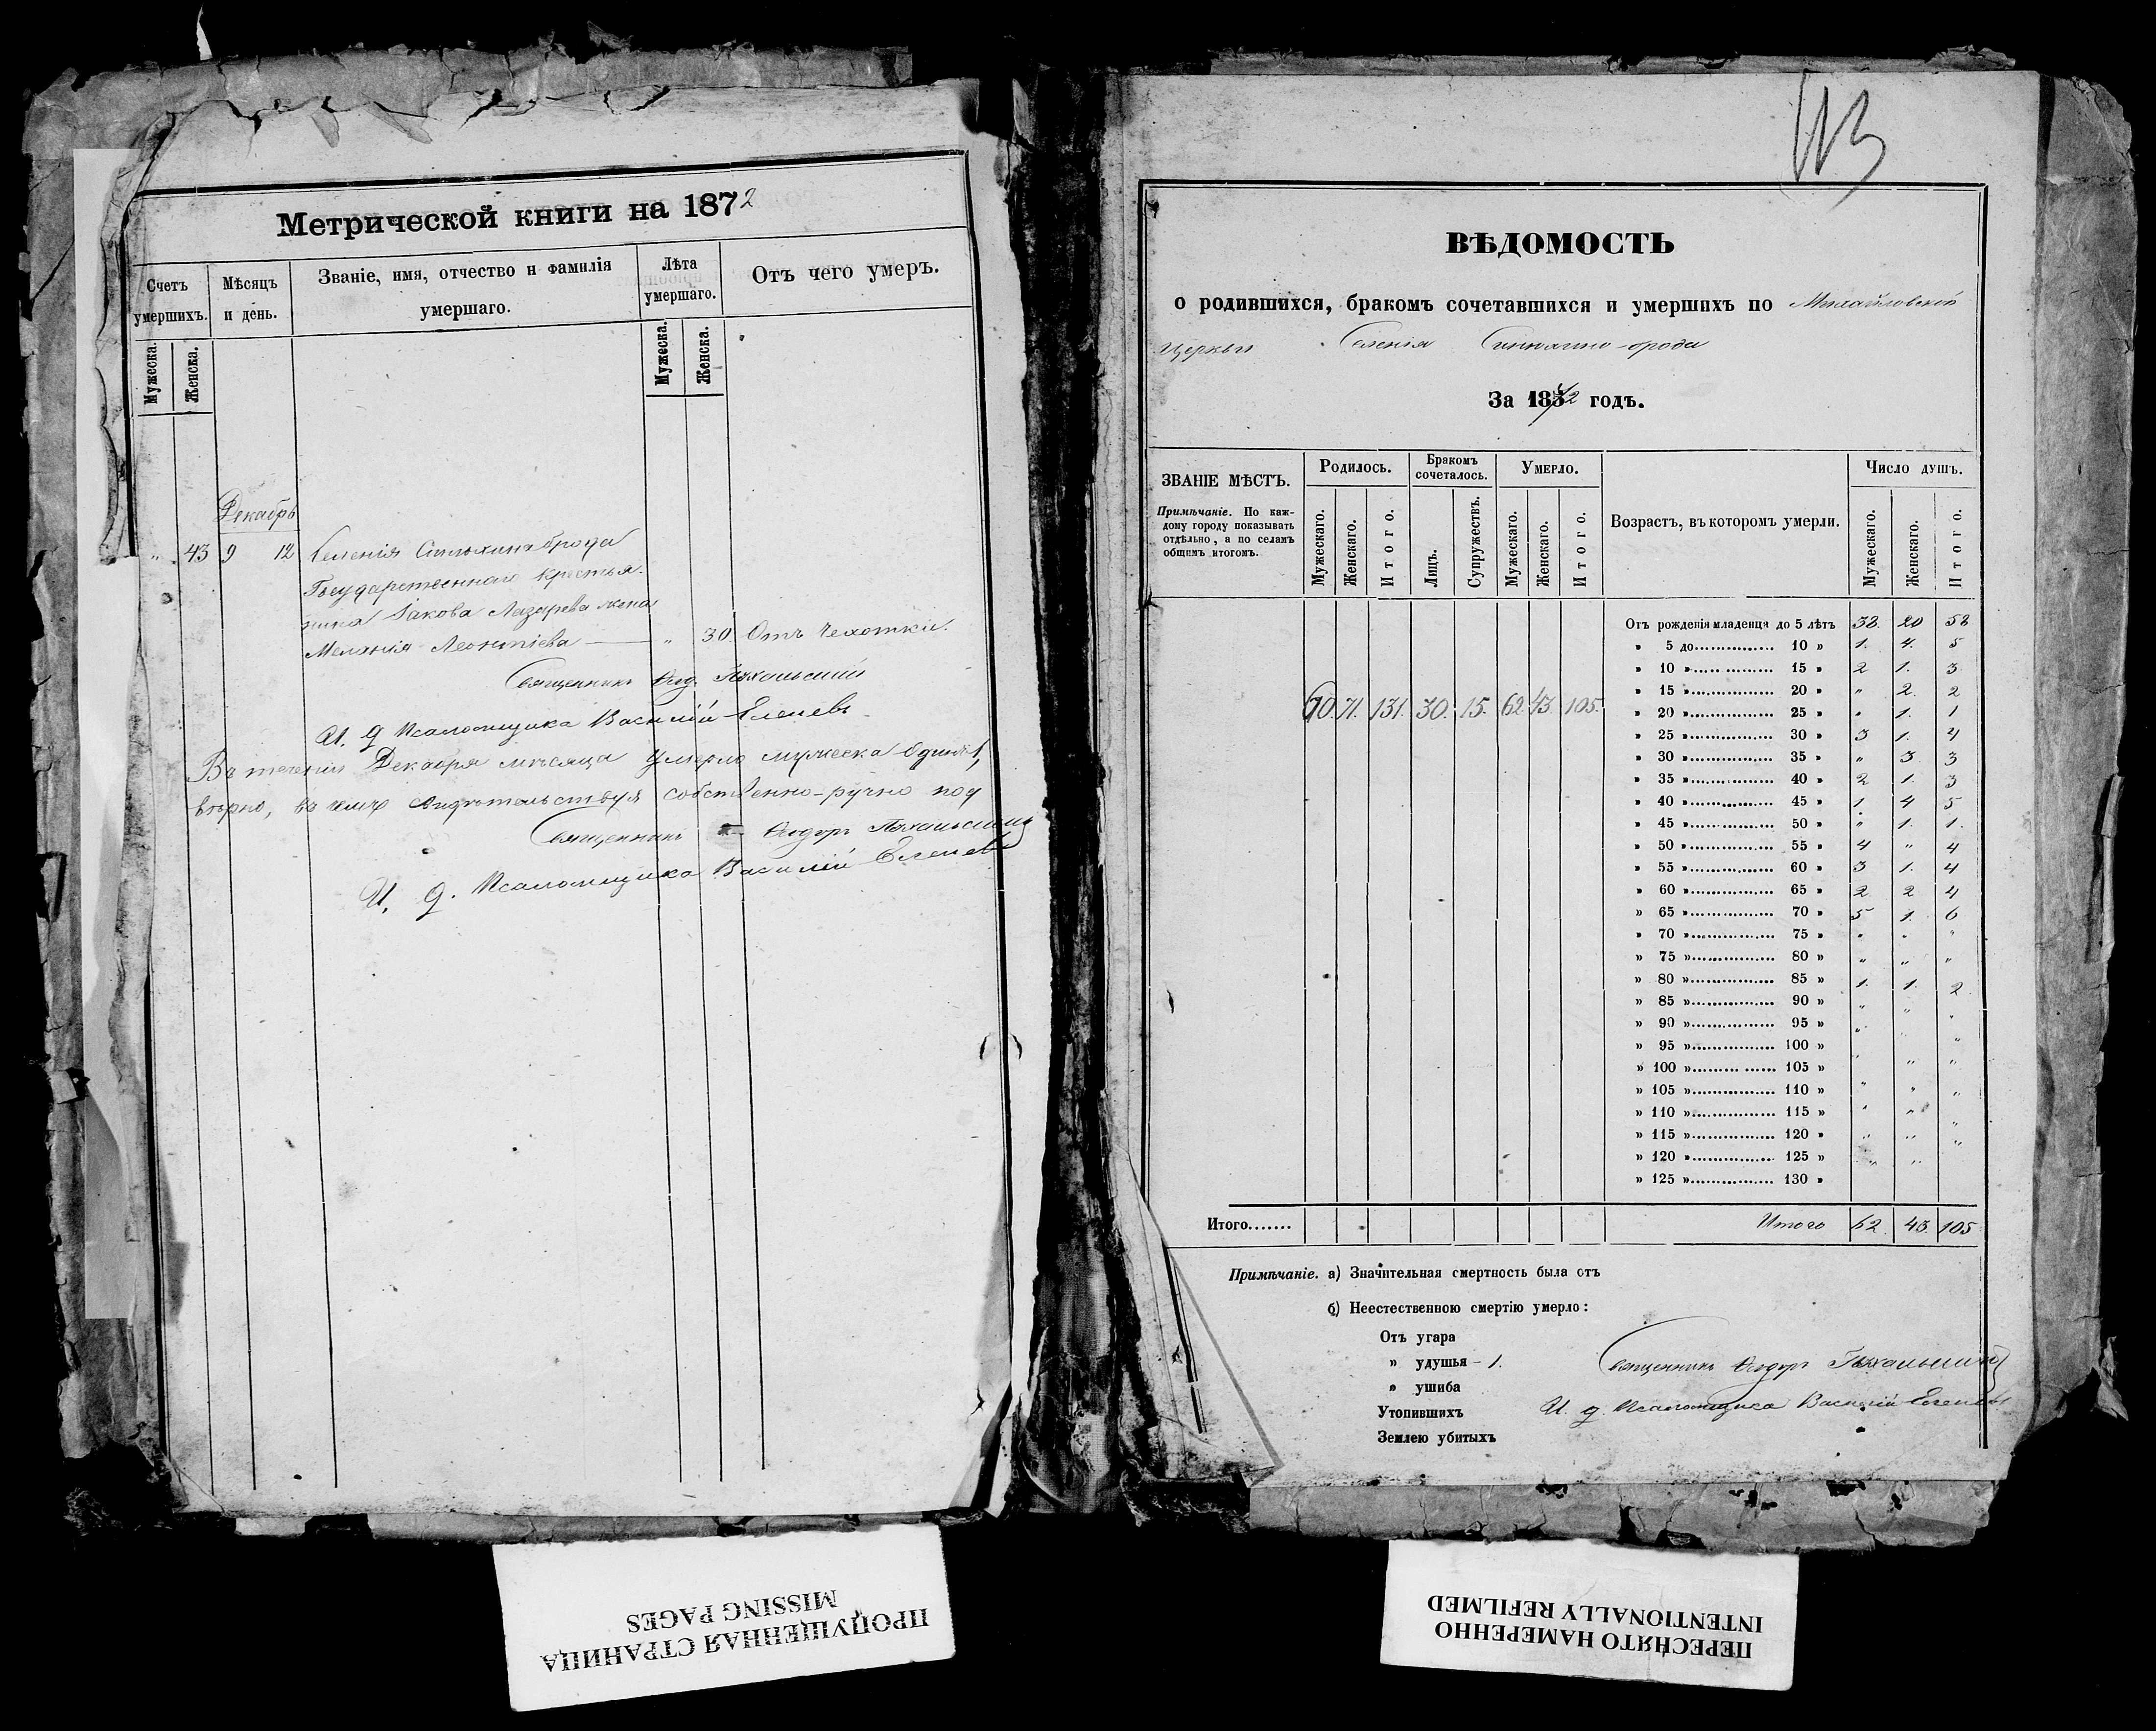 Метрической книги на 1872
Счетъ умершихъ.
Мѣсяцъ и день.
Званіе, имя, отчество и фамилія умершаго.
Лѣта умершаго.
Отъ чего умеръ.
Мужеска.
Женска.
Мужеска.
Женска.
Декабрь
" 43 9 12 Селенія
Государственнаго крестья-
нина Іакова Лазарева жена
Меланія Леонтіева — " 30 Отъ Чахотки.
Священникъ Ѳеод.
И. д. Псаломщика Василій
Въ теченіи Декабря мѣсяца умерло мужеска одинъ 1,
вѣрно, въ чемъ свидѣтельствуя собственно-ручно под
Священникъ Ѳеодоръ
И. д. Псаломщика Василій
113
ВѢДОМОСТЬ
о родившихся, бракомъ сочетавшихся и умершихъ по Михайловской
Церкви Селенія
За 1872 годъ.
ЗВАНІЕ МѢСТЪ.
Примѣчаніе. По каж-
дому городу показывать
отдѣльно, а по селамъ
общимъ итогомъ.
Родилось.
Бракомъ сочеталось.
Умерло.
Возрастъ, въ которомъ умерли.
Число душъ.
Мужескаго.
Женскаго.
Итого.
Лицъ.
Супружествъ.
Мужескаго.
Женскаго.
Итого.
Мужескаго.
Женскаго.
Итого.
Отъ рожденія младенца до 5 лѣтъ 38. 20 58
» 5 до 10 » 1. 4. 5
» 10 » 15 » 2 1. 3
» 15 » 20 » " 2. 2
60. 71. 131. 30. 15. 62 43. 105.
» 20 » 25 » " 1. 1
» 25 » 30 » 3 1. 4
» 30 » 35 » " 3 3
» 35 » 40 » 2 1. 3
» 40 » 45 » 1 4 5
» 45 » 50 » " 1. 1.
» 50 » 55 » 4 " 4
» 55 » 60 » 3 1. 4
» 60 » 65 » 2 2 4
» 65 » 70 » 5 1. 6
» 70 » 75 » " " "
» 75 » 80 » " " "
» 80 » 85 » 1. 1. 2
» 85 » 90 » " " "
» 90 » 95 » " " "
» 95 » 100 » " " "
» 100 » 105 » " " "
» 105 » 110 » " " "
» 110 » 115 » " " "
» 115 » 120 » " " "
» 120 » 125 » " "
» 125 » 130 »
Итого....... Итого 62 43. 105
Примѣчаніе. а) Значительная смертность была отъ
б) Неестественною смертію умерло:
Отъ угара
» удушья — 1.
» ушиба
Утопившихъ
Землею убитыхъ
Священникъ Ѳеодоръ
И. д. Псаломщика Василій
ПРОПУЩЕННАЯ СТРАНИЦА
MISSING PAGES
ПЕРЕСНЯТО НАМЕРЕННО
INTENTIONALLY REFILMED